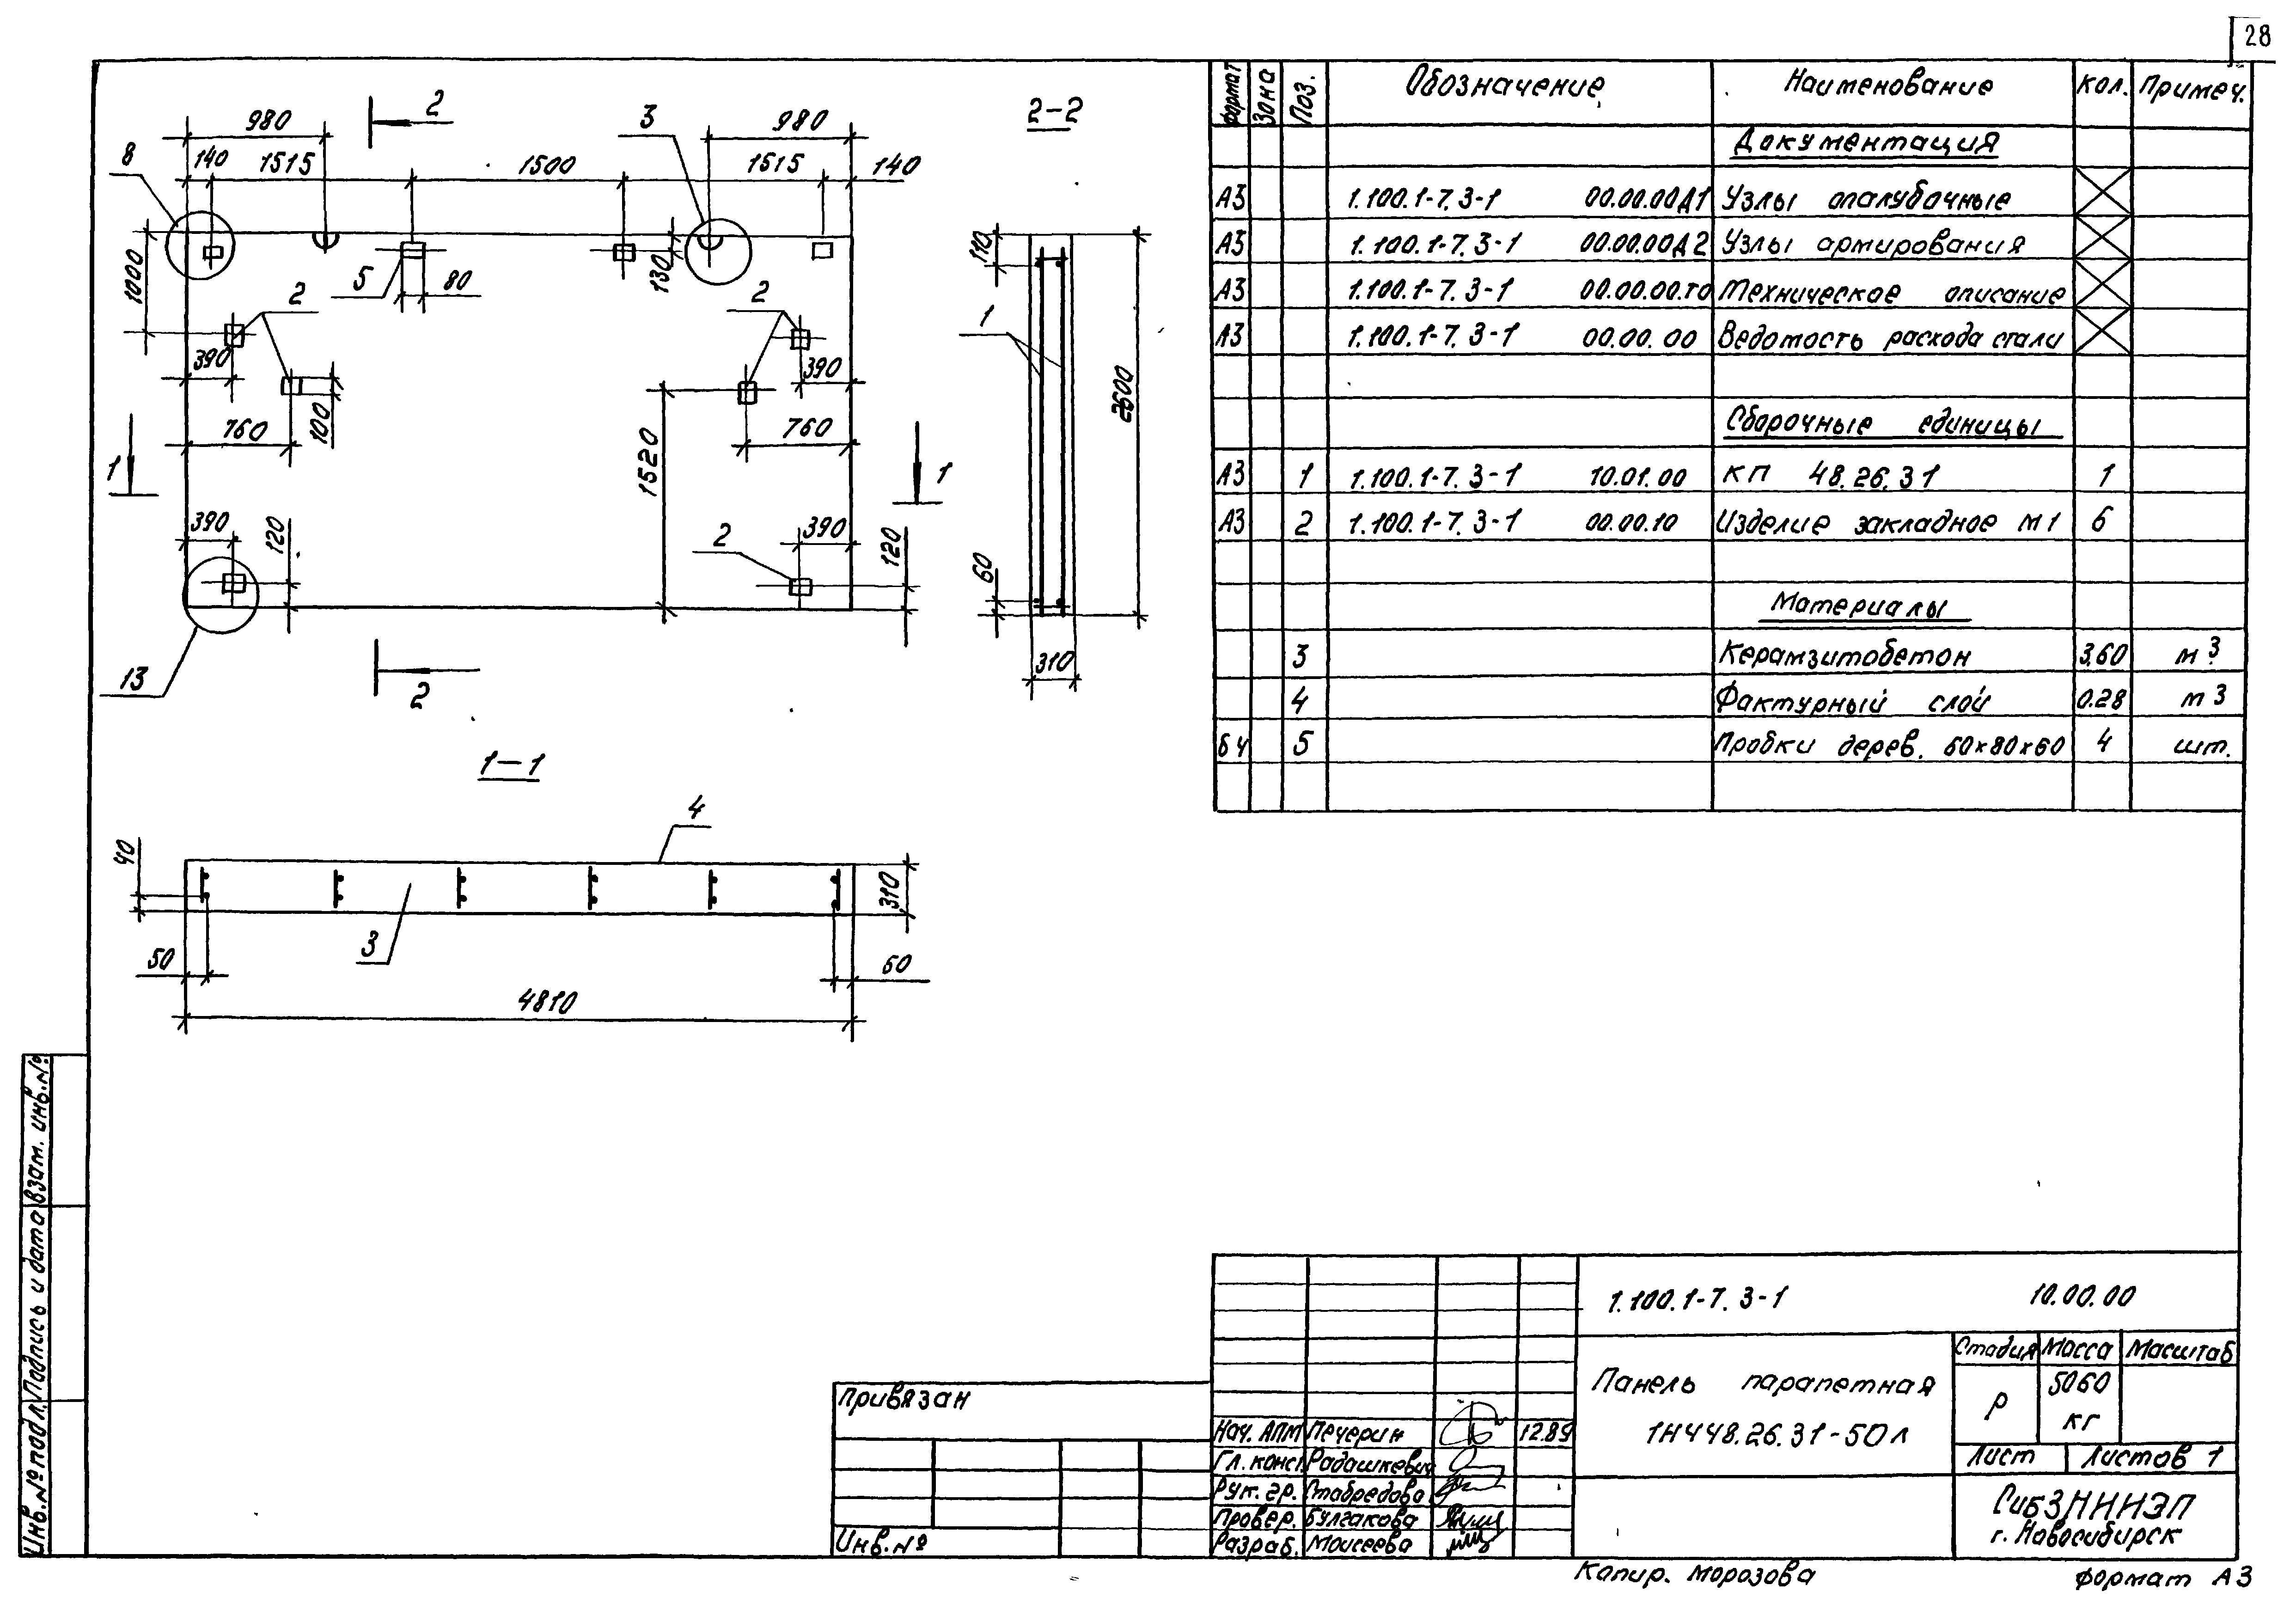 28
980
2
3
980
2-2
8
140
1515
1500
1515
140
1000
130
110
5
80
2
2
1
390
390
100
760
760
2600
1520
1
1
390
120
2
390
120
60
310
13
2
1-1
4
40
310
3
50
60
4810
Формат
Зона
Поз.
Обозначение
Наименование
Кол.
Примеч.
Документация
А3 1.100.1-7.3-1 00.00.00Д1 Узлы опалубочные
А3 1.100.1-7.3-1 00.00.00Д2 Узлы армирования
А3 1.100.1-7.3-1 00.00.00.ТО Техническое описание
А3 1.100.1-7.3-1 00.00.00 Ведомость расхода стали
Сборочные единицы
А3 1 1.100.1-7.3-1 10.01.00 КП 48.26.31 1
А3 2 1.100.1-7.3-1 00.00.10 Изделие закладное М1 6
Материалы
3 Керамзитобетон 3,60 м3
4 Фактурный слой 0.28 м3
БЧ 5 Пробки дерев. 60х80х60 4 шт.
1.100.1-7.3-1 10.00.00
Панель парапетная
1НЧ48.26.31-50л
Стадия Масса Масштаб
Р 5060 кг
Лист Листов 1
СибЗНИИЭП
г. Новосибирск
Нач. АПМ Печерин 12.89
Гл. конст. Радашкевич
Рук. гр. Стабредова
Провер. Булгакова
Разраб. Моисеева
Привязан
Инв.№
Инв.№подл.
Подпись и дата
Взам. инв.№
Копир. Морозова
Формат А3